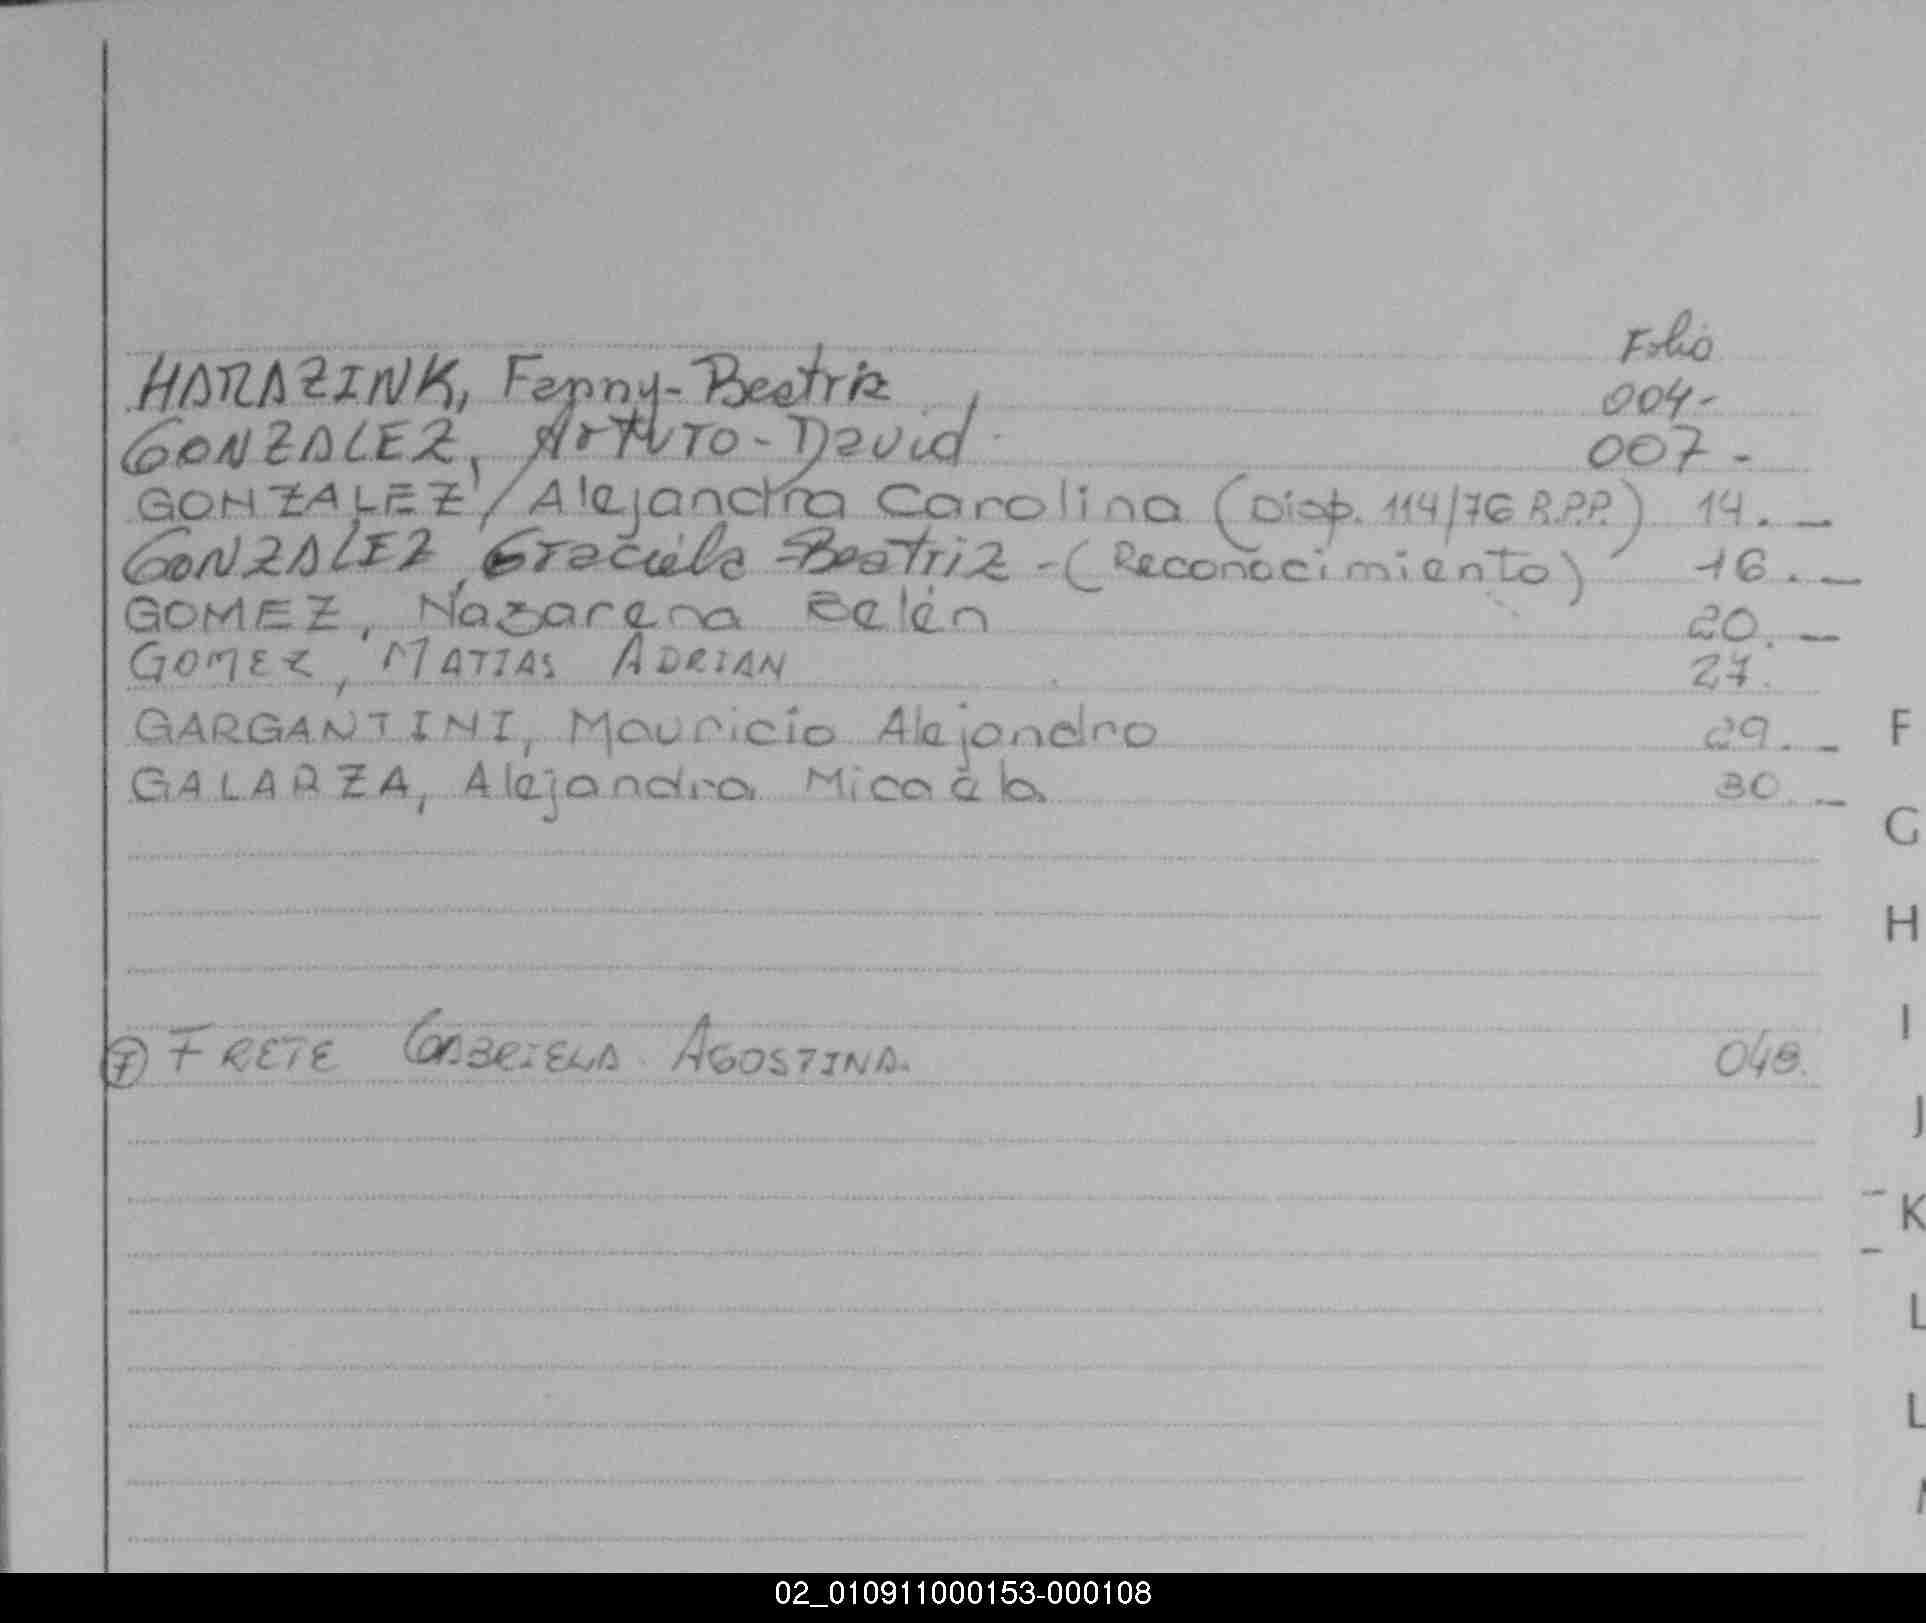 Folio
HARAZINK, Fanny-Beatriz 004-
GONZALEZ, Arturo-David 007-
GONZALEZ, Alejandra Carolina (Disp. 114/76 R.P.P.) 14.-
GONZALEZ, Graciela Beatriz-(Reconocimiento) 16.-
GOMEZ, Nazarena Belén 20.-
GOMEZ, MATIAS ADRIAN 27.
GARGANTINI, Mauricio Alejandro 29.-
GALARZA, Alejandra Micaela 30.-
F FRETE GABRIELA AGOSTINA.
F
G
H
I
J
K
L
L
02_010911000153-000108